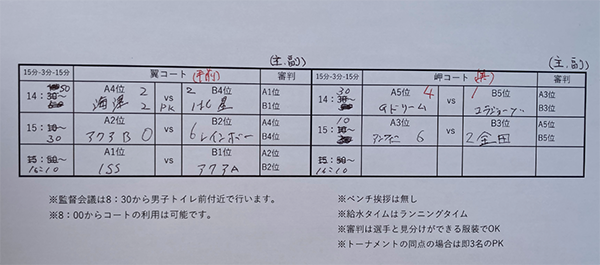 (主.副)
(主.副)
15分-3分-15分 翼コート (手前) 審判 15分-3分-15分 岬コート (奥) 審判
14:30~ 50 A4位 2 vs 2 B4位 A1位
海洋 2 PK 1 B1位
14:30~ 30 A5位 4 vs 1 B5位 A3位
Qドリーム B3位
15: ~ 30 A2位 vs B2位 A1位
アクアB 0 6 レインボー B4位
15: ~ 10 A3位 6 vs B3位 A5位
2 金田 B5位
15:50~ 16:10 A1位 vs B1位 A2位
ISS アクアA B2位
15:50~ 16:10 vs
※監督会議は8:30から男子トイレ前付近で行います。
※8:00からコートの利用は可能です。
※ベンチ挨拶は無し
※給水タイムはランニングタイム
※審判は選手と見分けができる服装でOK
※トーナメントの同点の場合は即3名のPK